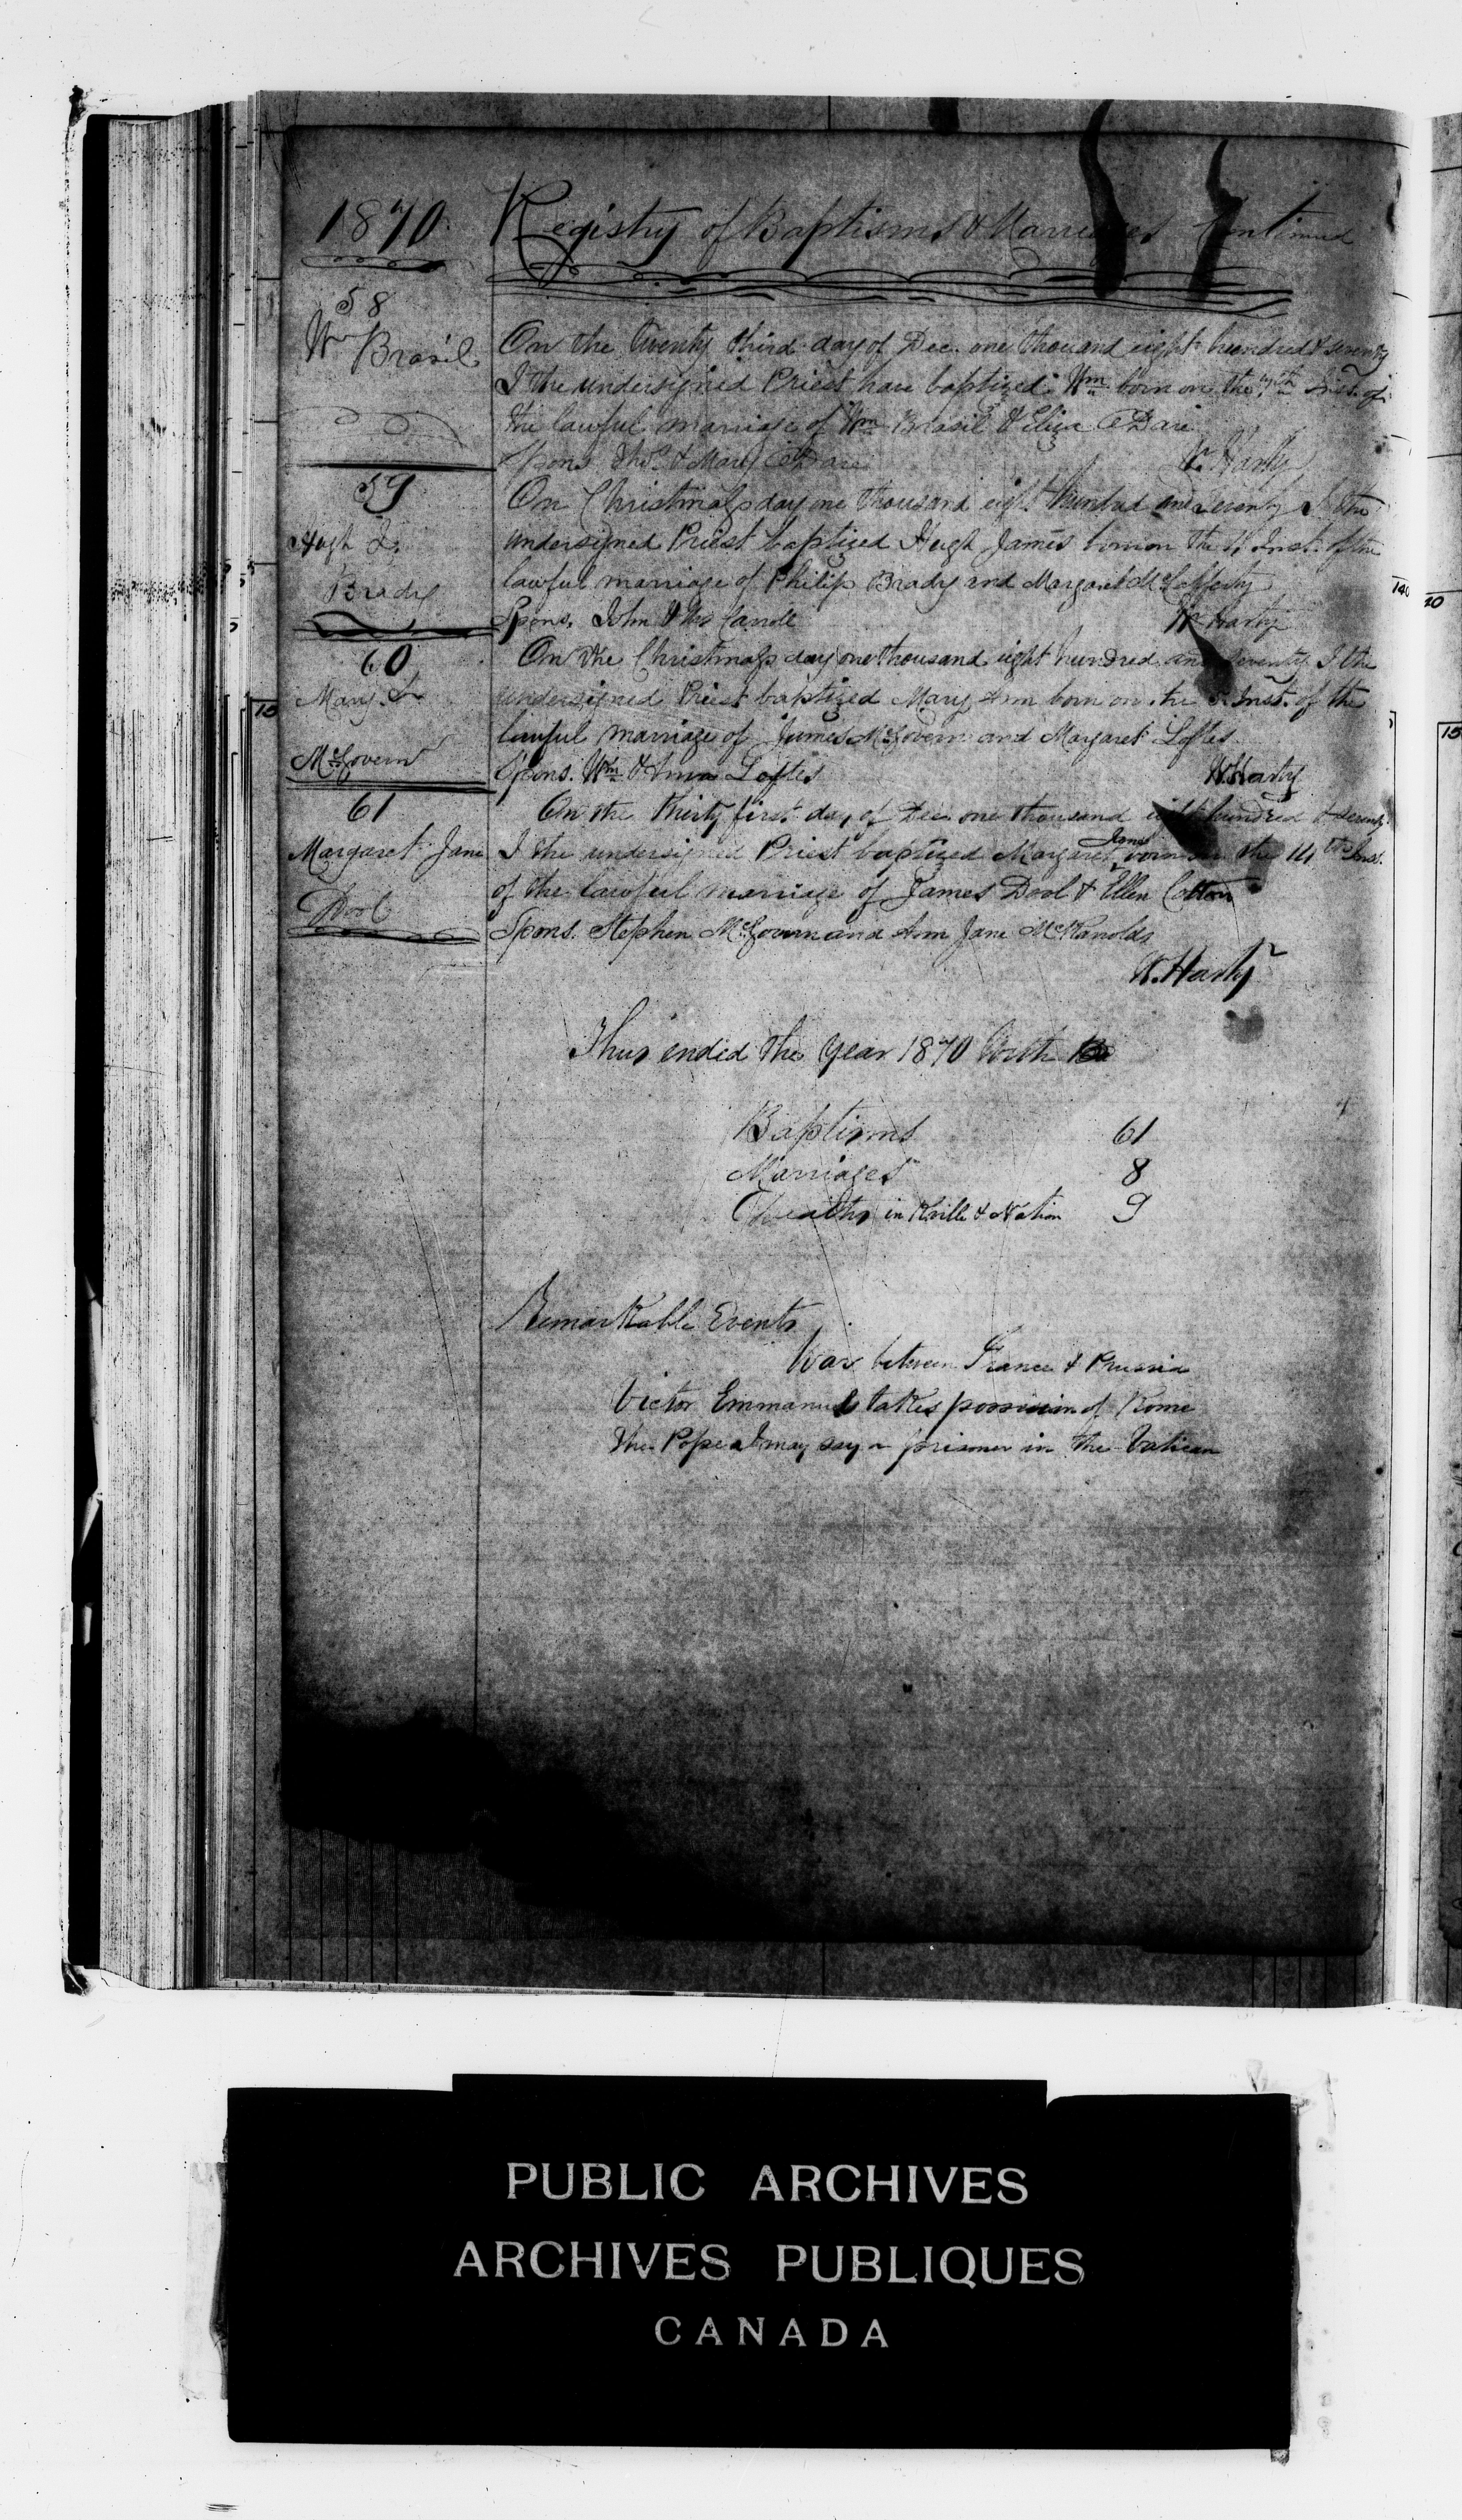 1870 Registry of Baptisms & Marriages Continued
58
Wm Brasil
On the twenty third day of Dec. one thousand eight hundred & seventy
I the undersigned Priest have baptized Wm born on the Inst. of
the lawful marriage of Wm Brasil & Eliza O'Dare
Spons. Thos. & Mary O'Dare W. Harty
59
Hugh J.
Brady
On Christmass day one thousand eight hundred and seventy I the
undersigned Priest baptized Hugh James born on the Inst. of the
lawful marriage of Philip Brady and Margaret McCafferty
Spons. John & Carroll W. Harty
60
Mary
McGovern
On the Christmass day one thousand eight hundred and seventy I the
undersigned Priest baptized Mary Ann born on the Inst. of the
lawful marriage of James McGovern and Margaret Loftes
Spons. Wm & Ann Loftes W. Harty
61
Margaret Jane
Dool
On the thirty first day of Dec one thousand eight hundred & seventy
I the undersigned Priest baptized Margaret Jane born on the 14th Inst.
of the lawful marriage of James Dool & Ellen Cotton
Spons. Stephen McGovern and Ann Jane McRanolds
W. Harty
Thus ended the year 1870 With
Baptisms 61
Marriages 8
Deaths in Kville & Nation 9
Remarkable Events
War between France & Prussia
Victor Emmanuel takes possession of Rome
The Pope I may say a prisoner in the Vatican
PUBLIC ARCHIVES
ARCHIVES PUBLIQUES
CANADA